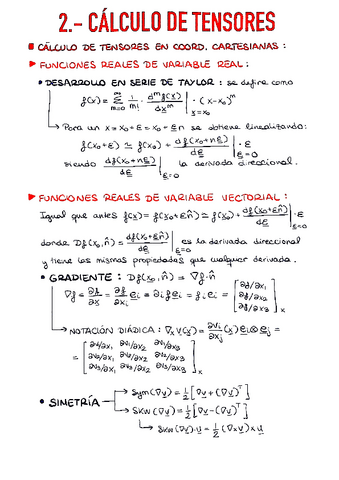 2.- CÁLCULO DE TENSORES
CÁLCULO DE TENSORES EN COORD. CARTESIANAS:
FUNCIONES REALES DE VARIABLE REAL:
• DESARROLLO EN SERIE DE TAYLOR: se define como
f(x) = Σ_{m=0}^{∞} 1/m! · d^m f(x)/dx^m |_{x=x₀} · (x-x₀)^m
Para un x = x₀+ε = x₀+εn se obtiene linealizando:
f(x₀+ε) ≃ f(x₀) + df(x₀+nε)/dε |_{ε=0} · ε
siendo df(x₀+nε)/dε |_{ε=0} la derivada direccional.
FUNCIONES REALES DE VARIABLE VECTORIAL:
Igual que antes f(x) = f(x₀+εn̂) ≃ f(x₀) + df(x₀+εn̂)/dε |_{ε=0} · ε
donde Df(x₀,n̂) = df(x₀+εn̂)/dε |_{ε=0} es la derivada direccional
y tiene las mismas propiedades que cualquier derivada.
• GRADIENTE: Df(x₀,n̂) = ∇f·n̂
∇f = ∂f/∂x = ∂f/∂xᵢ eᵢ = ∂ᵢf eᵢ = f,ᵢ eᵢ = [∂f/∂x₁ ∂f/∂x₂ ∂f/∂x₃]ₓ
NOTACIÓN DIÁDICA: ∇ₓv(x) = ∂vᵢ/∂xⱼ (x) eᵢ⊗eⱼ =
= [∂v₁/∂x₁ ∂v₁/∂x₂ ∂v₁/∂x₃
∂v₂/∂x₁ ∂v₂/∂x₂ ∂v₂/∂x₃
∂v₃/∂x₁ ∂v₃/∂x₂ ∂v₃/∂x₃]ₓ
• SIMETRÍA → Sym(∇v) = 1/2 [∇v+(∇v)ᵀ]
→ Skw(∇v) = 1/2 [∇v-(∇v)ᵀ]
→ Skw(∇v)·u = 1/2 (∇×v)×u